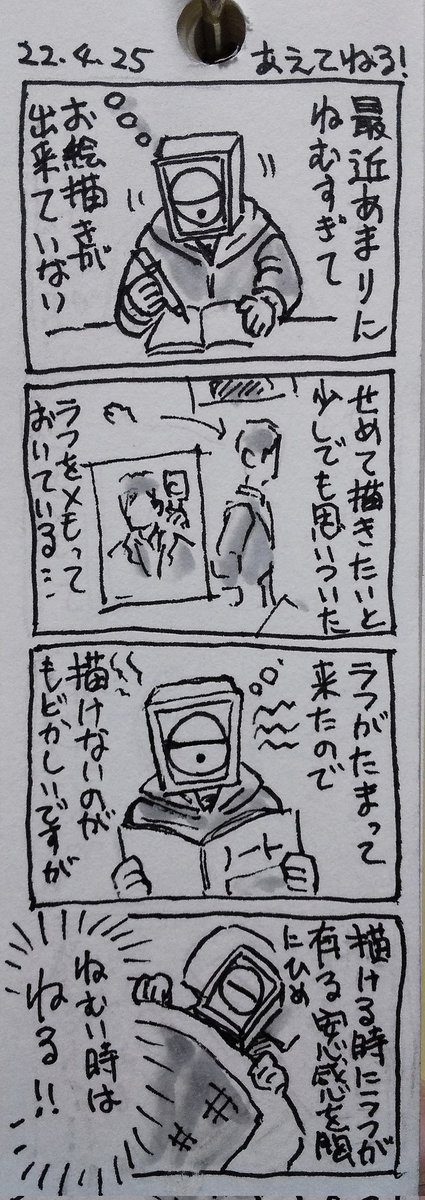 22.4.25
あえてねる!
最近あまりに
ねむすぎて
お絵描きが
出来ていない
せめて描きたいと
少しでも思いついた
ラフをメモって
おいている…
ラフがたまって
来たので
ノート
描けないのが
もどかしいですが
描ける時にラフが
有る安心感を胸
にひめ
ねむい時は
ねる!!